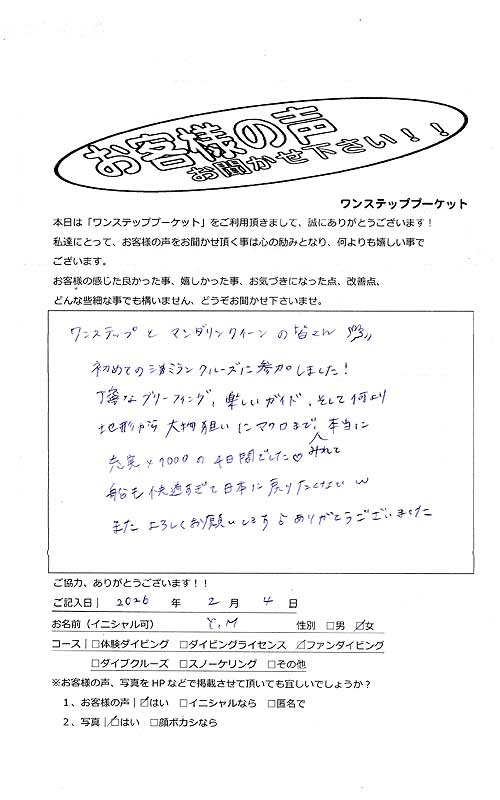 お客様の声
お聞かせ下さい！！
ワンステッププーケット
本日は「ワンステッププーケット」をご利用頂きまして、誠にありがとうございます！
私達にとって、お客様の声をお聞かせ頂く事は心の励みとなり、何よりも嬉しい事で
ございます。
お客様の感じた良かった事、嬉しかった事、お気づきになった点、改善点、
どんな些細な事でも構いません、どうぞお聞かせ下さいませ。
ワンステップと マンダリンクイーンの皆さん
初めてのシミランクルーズに参加しました！
丁寧なブリーフィング、楽しいガイド、そして何より
地形や 大物狙いにマクロまで、みれて 本当に
充実×1000の4日間でした♡
船も快適すぎて日本に戻りたくない w
また よろしくお願いします ありがとうございました
ご協力、ありがとうございます！！
ご記入日｜ 2026 年 2 月 4 日
お名前（イニシャル可） Y.M 性別 □男 ☑女
コース｜□体験ダイビング □ダイビングライセンス ☑ファンダイビング
□ダイブクルーズ □スノーケリング □その他
※お客様の声、写真をHPなどで掲載させて頂いても宜しいでしょうか？
１、お客様の声｜☑はい □イニシャルなら □匿名で
２、写真｜☑はい □顔ボカシなら